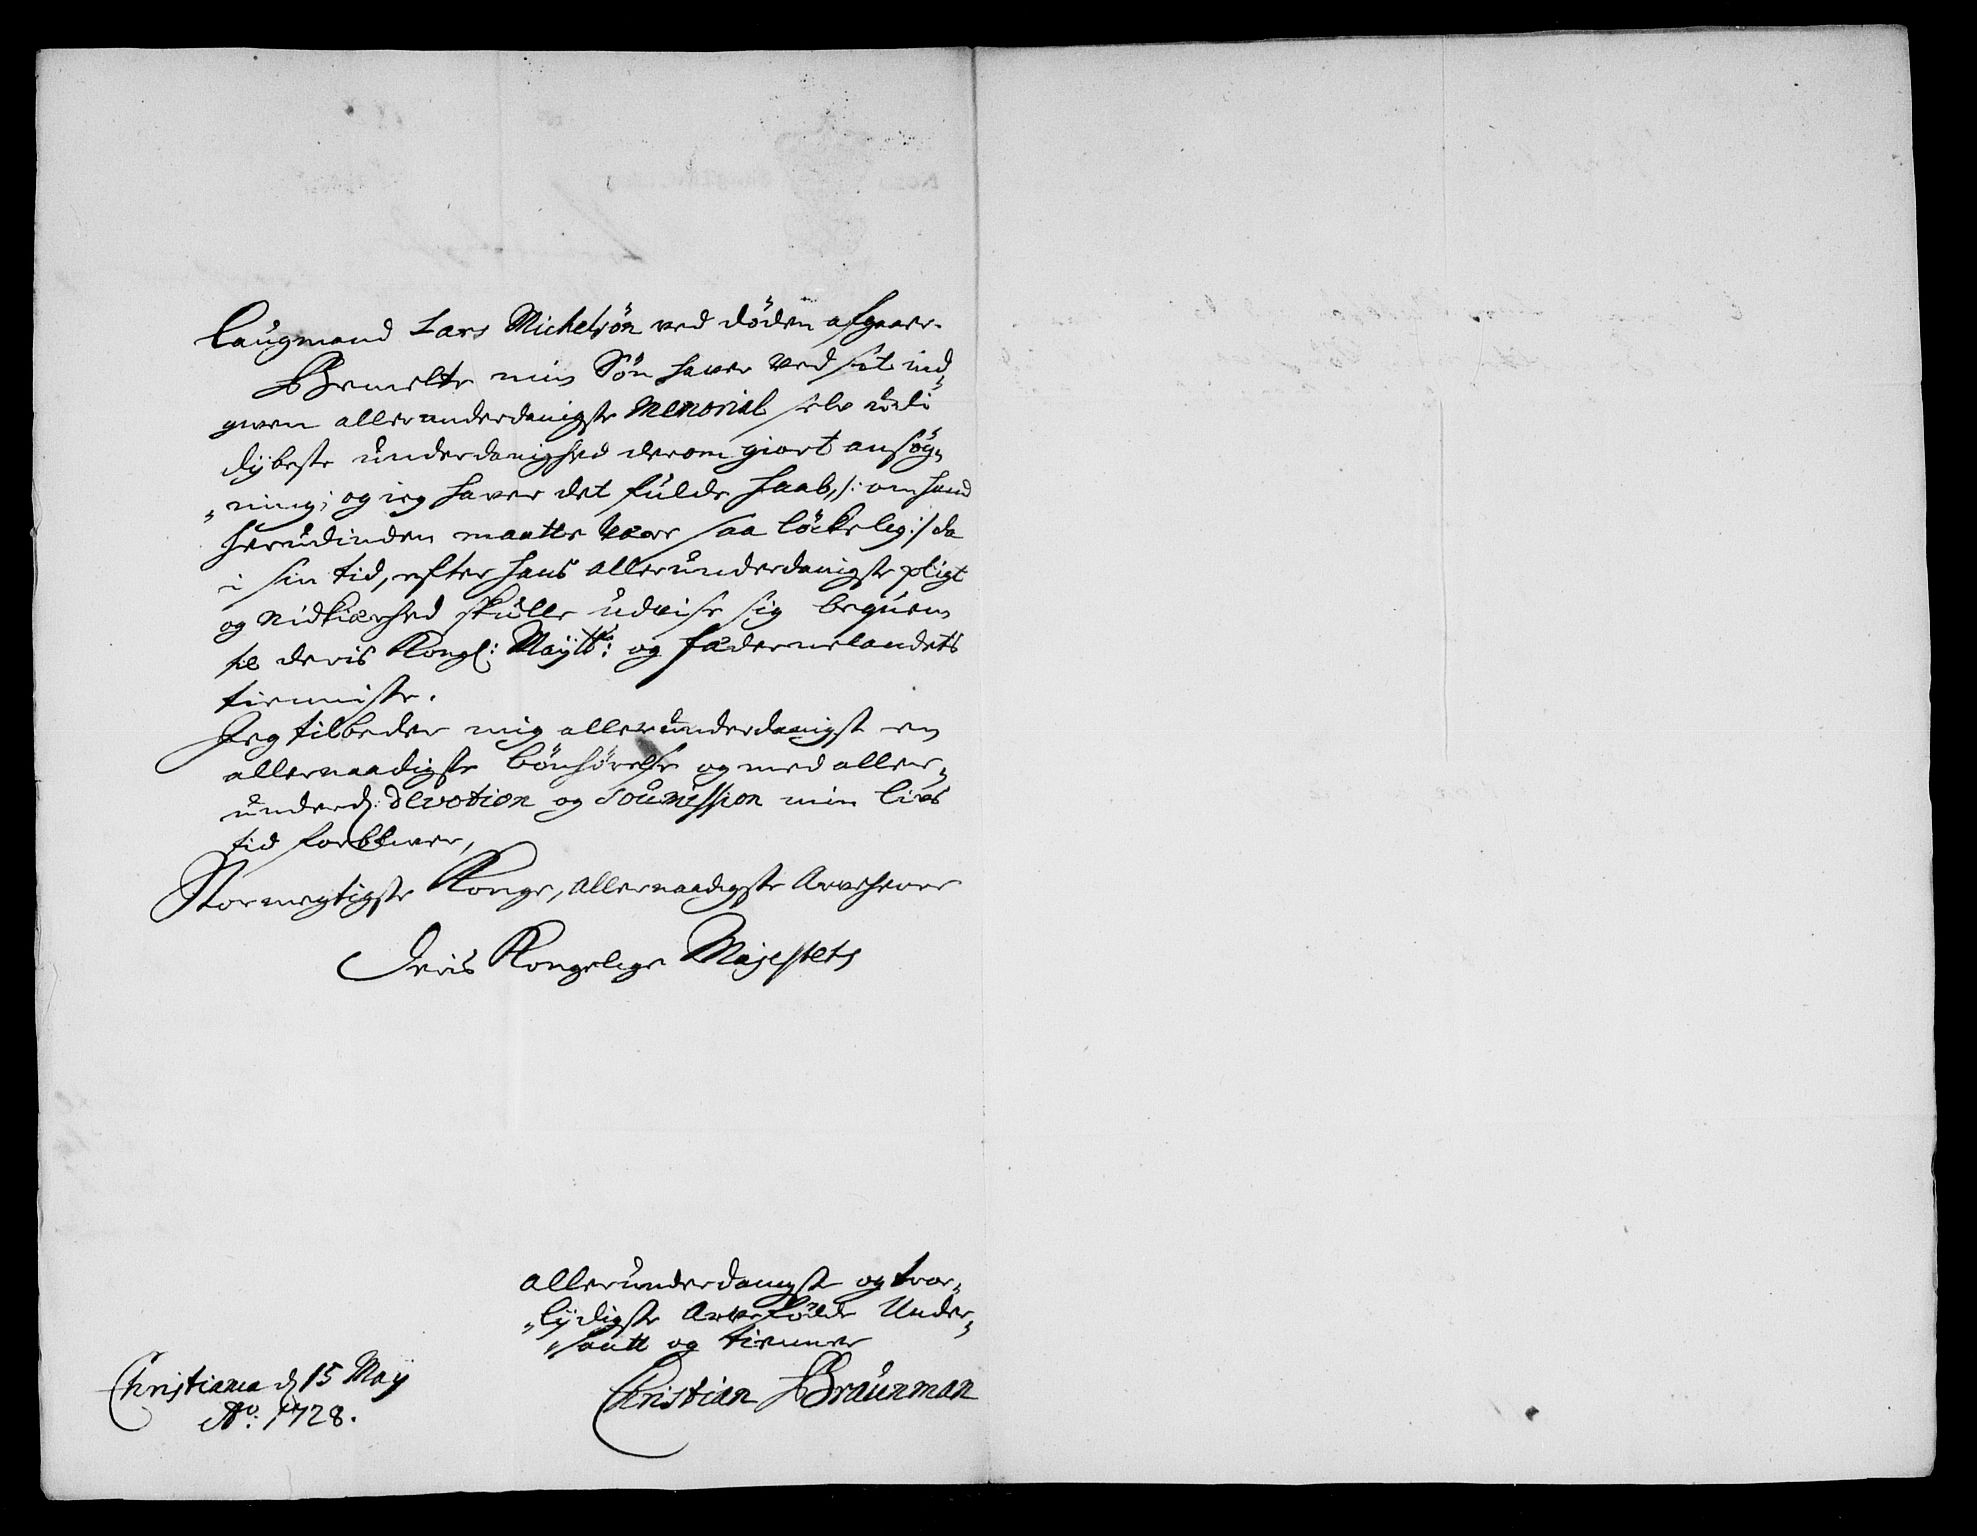 Laugmand Lars Michelsön ved döden afgaaer.
Bemelte min Sön haver ved sit ind„
given allerunderdanigste Memorial selv udi
dÿbeste underdanighed derom giort ansög„
„ning; og ieg haver det fulde haab, /: om hand
herudinden maatte være saa löckelig :/ da
i sin tid, efter hans allerunderdanigste pligt
og nidkiærhed skulle udvise sig beqvem
til deris Kongl: Maÿtts: og fædernelandets
tienniste.
Jeg tilbeder mig allerunderdanigst en
allernaadigste bönhörelse og med aller„
underd: devotion og soumission min livs
tid forbliver,
Stormegtigste Konge, allernaadigste Arveherre
Deris Kongelige Majestets
allerunderdanigst og troe„
„lÿdigste Arvefödde Under„
„saatt og tienner
Christian Braunman
Christiania d 15 Maÿ
Ao: 1728.